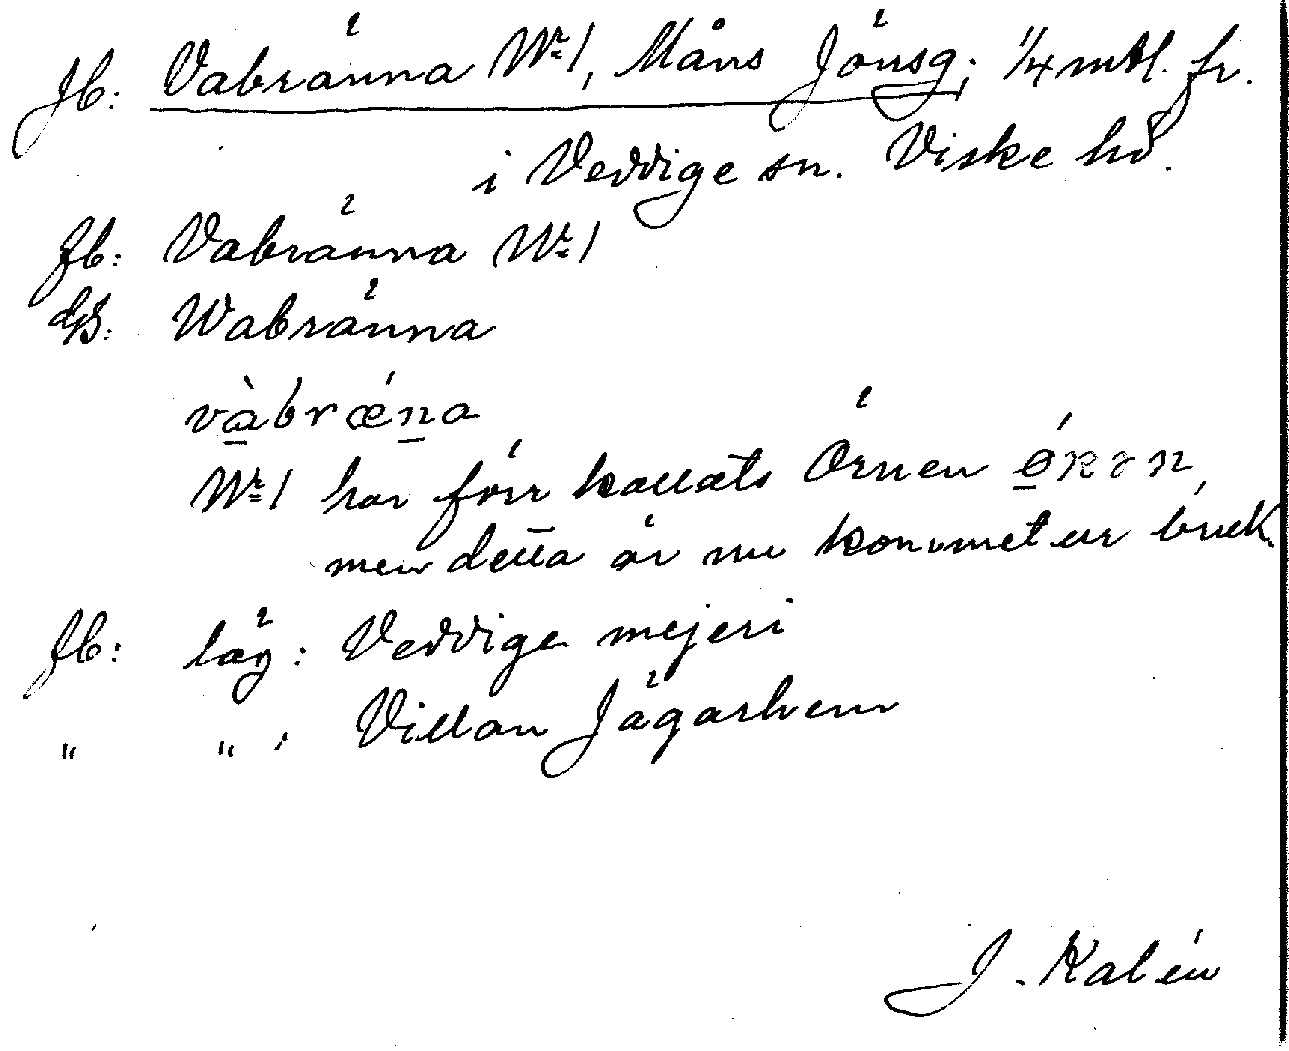 Jb: Vabränna Nr 1, Måns Jönsg; 1/4 mtl. fr.
i Veddige sn. Viske hd.
Jb: Vabränna Nr 1
GS: Wabränna
vàbrǽna
Nr 1 har förr kallats Örnen
men detta är nu kommet ur bruk.
Jb: läg: Veddige mejeri
" " : Villan Jägarhem
J. Kalén